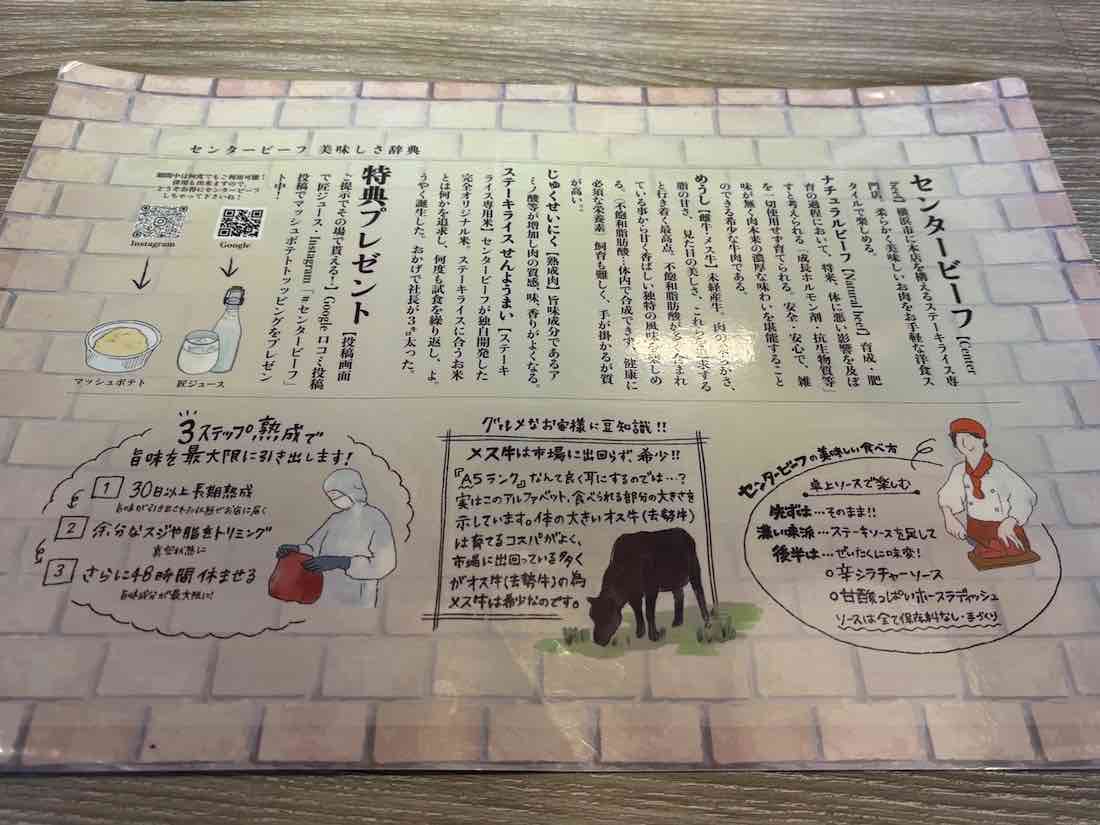 センタービーフ 美味しさ辞典
センタービーフ【Center
beef】横浜市に本店を構えるステーキライス専
門店。柔らかく美味しいお肉をお手軽な洋食ス
タイルで楽しめる。
ナチュラルビーフ【Natural beef】育成・肥
育の過程において、将来、体に悪い影響を及ぼ
すと考えられる「成長ホルモン剤・抗生物質等」
を一切使用せず育てられる。安全・安心で、雑
味が無く肉本来の濃厚な味わいを堪能すること
のできる希少な牛肉である。
めうし【雌牛・メス牛】未経産牛。肉の
脂の甘さ、見た目の美しさ、これらを求する
と行き着く最高点。不飽和脂肪酸が
ている事から甘く香ばしい独特の風味を楽しめ
る。（不飽和脂肪酸…体内で合成できず、健康に
必須な栄養素）飼育も難しく、手が掛かるが質
が高い。
じゅくせいにく【熟成肉】旨味成分であるア
ミノ酸等が増加し肉の質感、味、香りがよくなる。
ステーキライスせんようまい【ステーキ
ライス専用米】センタービーフが独自開発した
完全オリジナル米。ステーキライスに合うお米
とは何かを追求し、何度も試食を繰り返し、よ
うやく誕生した。おかげで社長が3㎏太った。
特典プレゼント【投稿画面
ご提示でその場で貰える！】Google口コミ投稿
で匠ジュース・Instagram「#センタービーフ」
投稿でマッシュポテトトッピングをプレゼン
ト中！
期間中は何度でもご利用可能！
併用も出来ますので、
どうぞお得にセンタービーフ
しちゃって下さいね！
Instagram
Google
マッシュポテト
匠ジュース
3ステップ熟成で
旨味を最大限に引き出します！
1 30日以上長期熟成
旨味が引き出された状態でお店に届く
2 余分なスジや脂をトリミング
真空状態に
3 さらに48時間休ませる
旨味成分が最大限に！
グルメなお客様に豆知識！！
メス牛は市場に出回らず、希少！！
『A5ランク』なんて良く耳にするのでは…？
実はこのアルファベット、食べられる部分の大きさを
示しています。体の大きいオス牛(去勢牛)
は育てるコスパがよく、
市場に出回っている多く
がオス牛(去勢牛)の為
メス牛は希少なのです。
センタービーフの美味しい食べ方
卓上ソースで楽しむ
先ずは…そのまま！！
濃い味派…ステーキソースを足して
後半は…ぜいたくに味変！
○辛シラチャーソース
○甘酸っぱいホースラディッシュ
ソースは全て保存料なし・手づくり